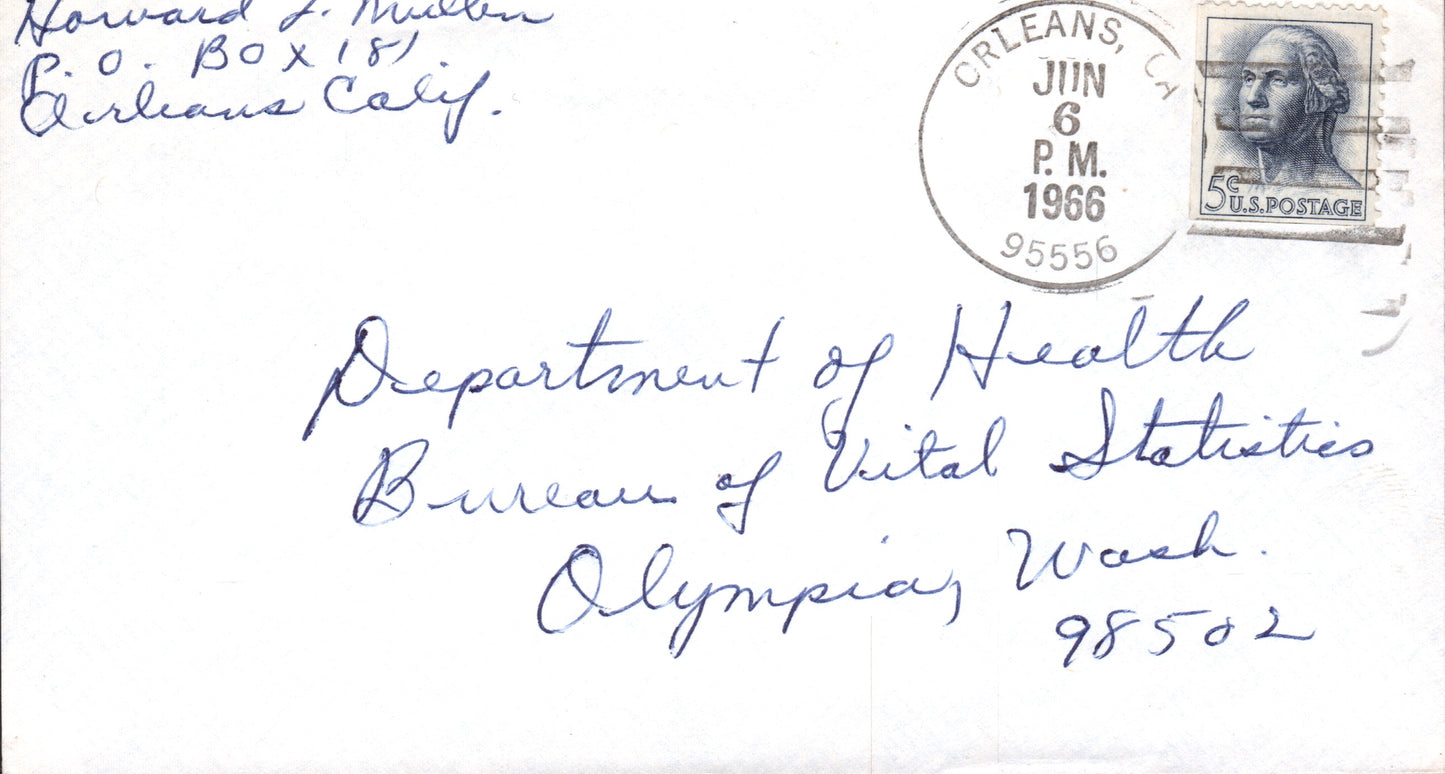 Howard L. Mullen
P. O. Box 181
Orleans Calif.
ORLEANS, CA
JUN
6
P. M.
1966
95556
5c
U.S. POSTAGE
Department of Health
Bureau of Vital Statistics
Olympia, Wash.
98502